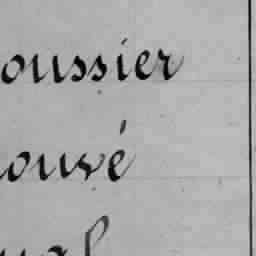 oussier
ouvé